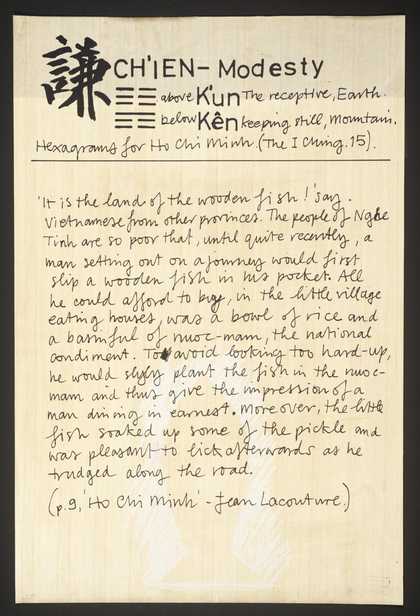 謙 CH'IEN - Modesty
above K'un The receptive, Earth.
below Kên keeping still, Mountain.
Hexagrams for Ho Chi Minh. (The I Ching. 15).
'It is the land of the wooden fish!' say
Vietnamese from other provinces. The people of Nghe
Tinh are so poor that, until quite recently, a
man setting out on a journey would first
slip a wooden fish in his pocket. All
he could afford to buy, in the little village
eating houses, was a bowl of rice and
a basinful of nuoc-mam, the national
condiment. To avoid looking too hard-up,
he would slyly plant the fish in the nuoc-
mam and thus give the impression of a
man dining in earnest. Moreover, the little
fish soaked up some of the pickle and
was pleasant to lick afterwards as he
trudged along the road.
(p.9, 'Ho Chi Minh' - Jean Lacouture.)